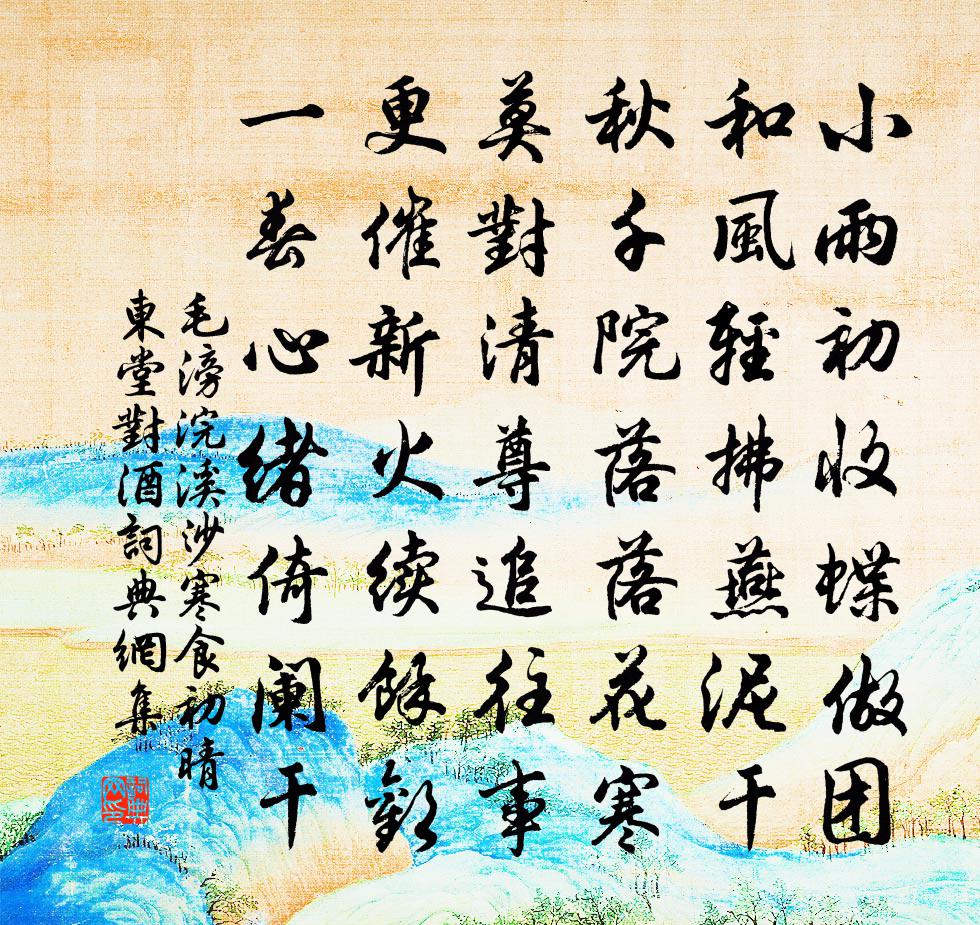 小雨初收蝶做团
和風輕拂燕泥干
秋千院落落花寒
莫對清尊追往事
更催新火續餘歡
一春心緒倚阑干
毛滂浣溪沙寒食初晴
東堂對酒詞典網集